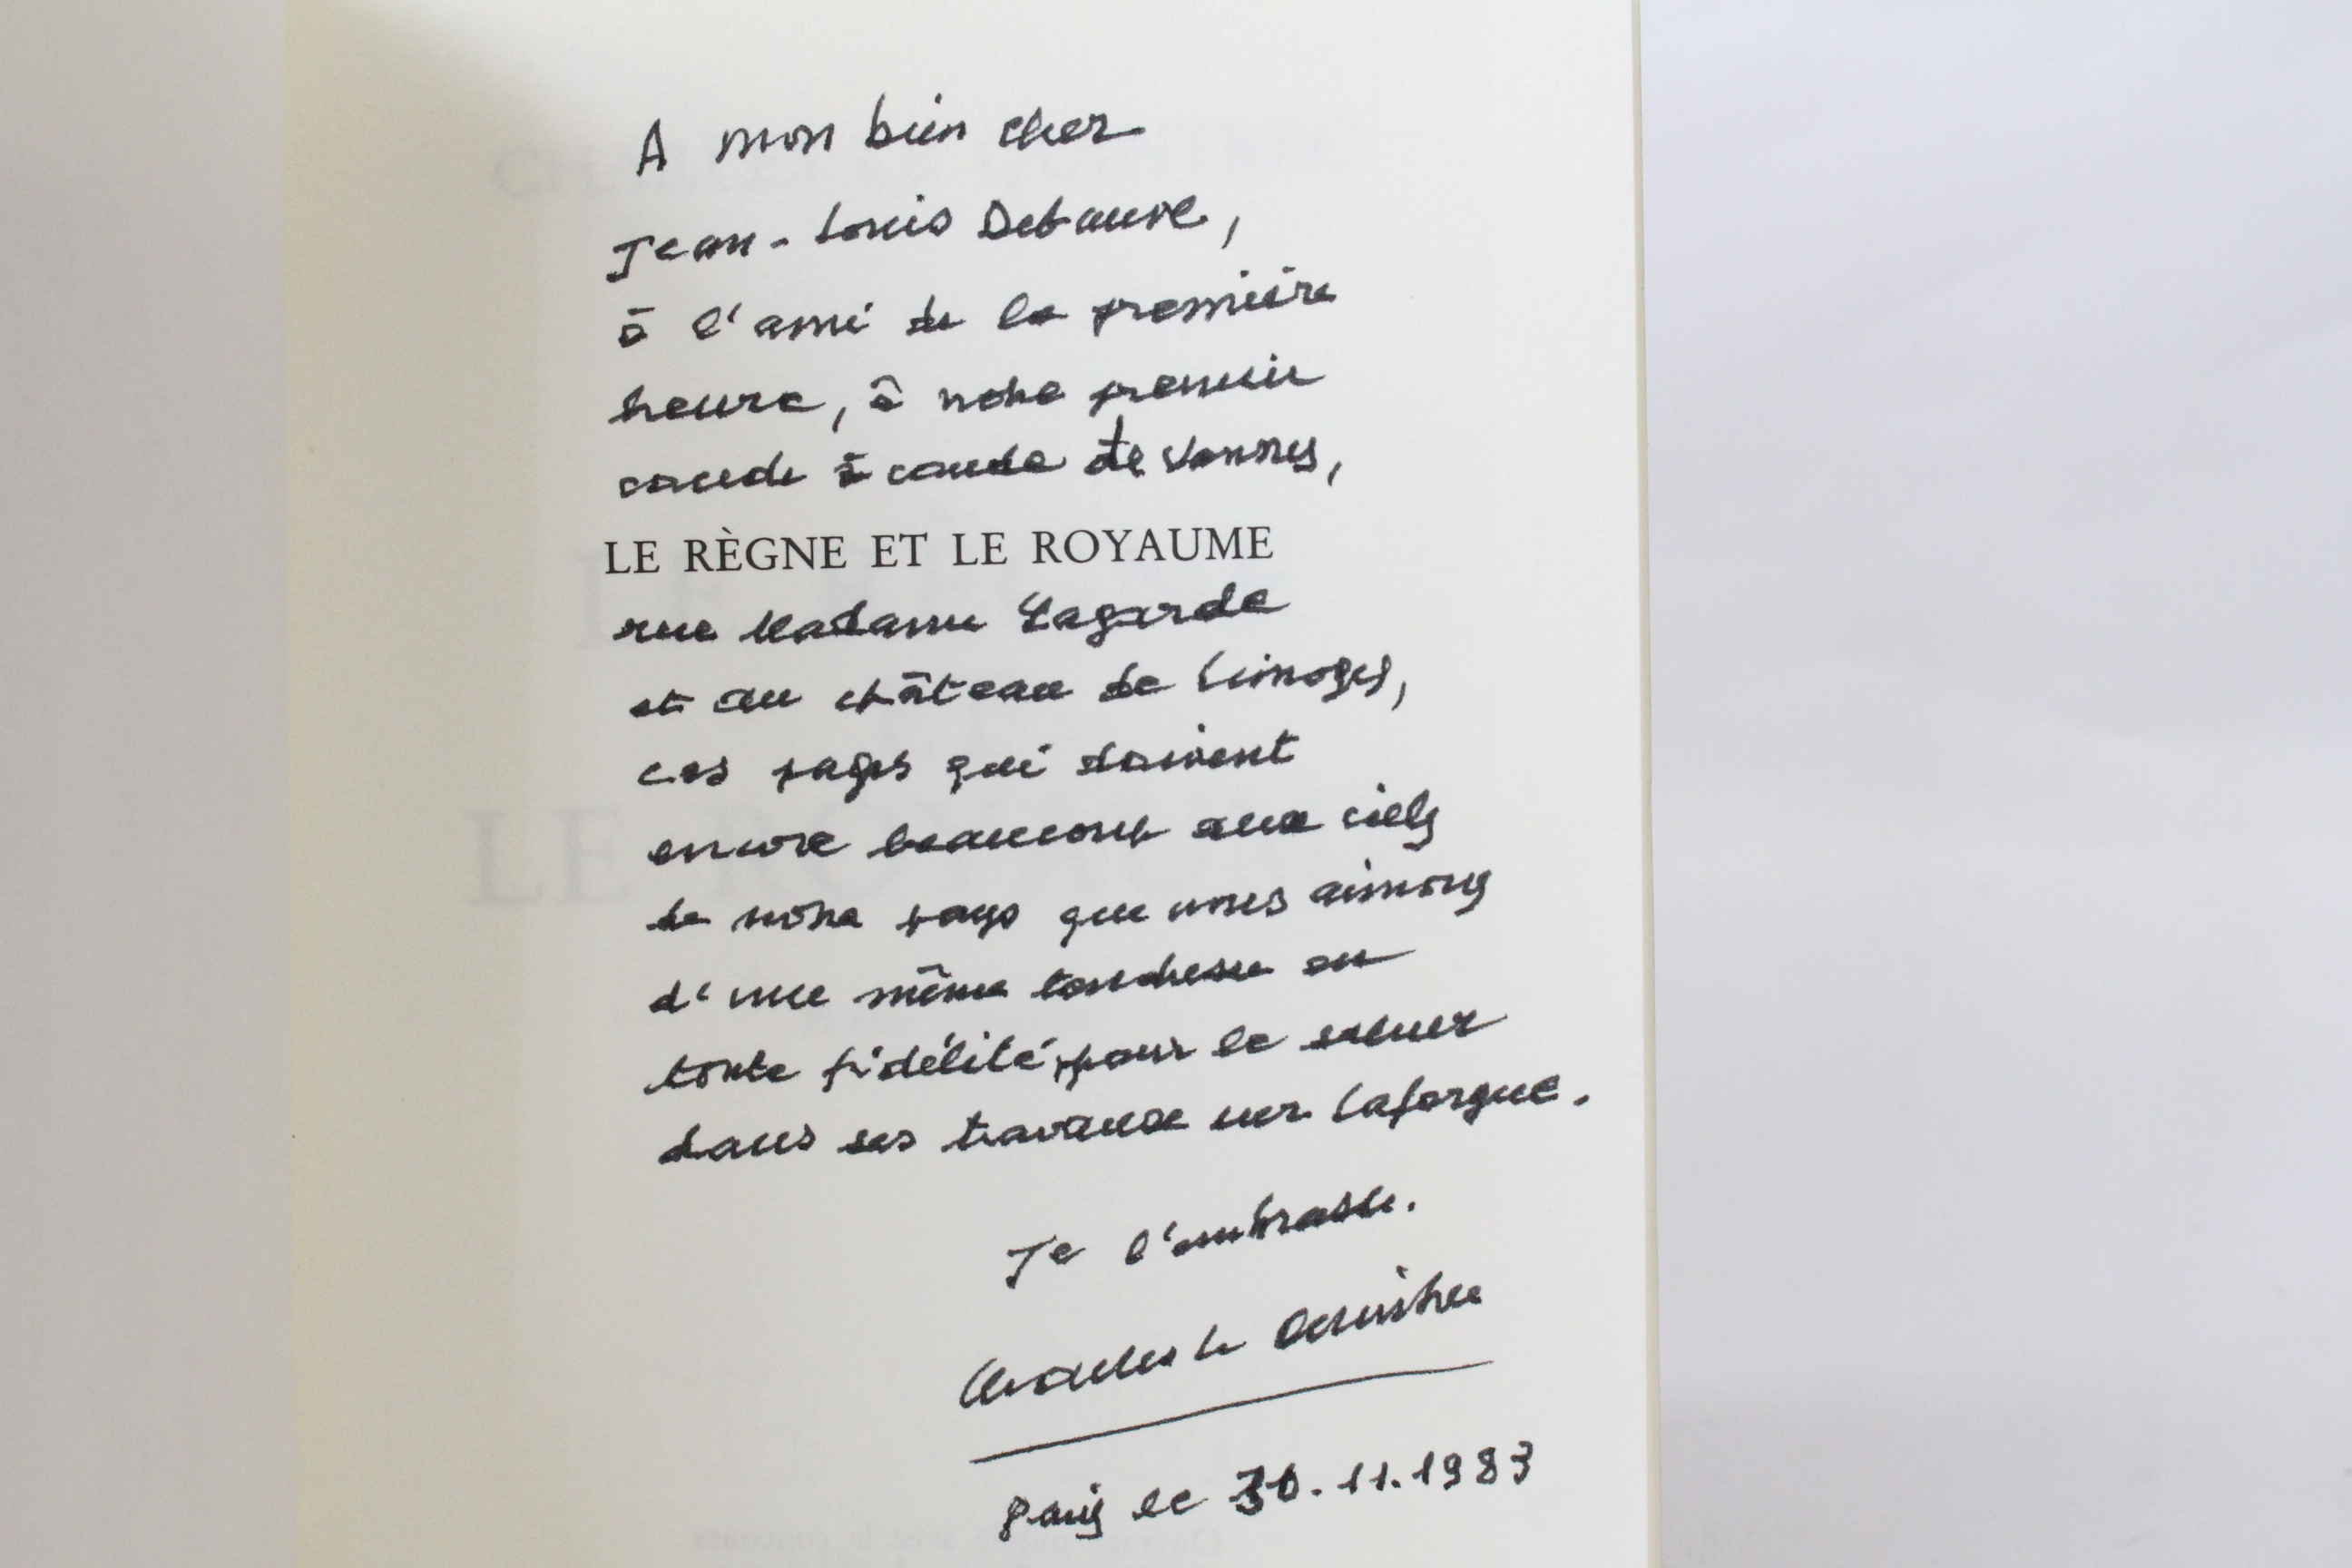 A mon bien cher
Jean-Louis Debauve,
à l'ami de la première
heure, à notre premier
coude à coude de Vannes,
LE RÈGNE ET LE ROYAUME
rue Madame Lagarde
et au château de Limoges,
ces pages qui doivent
encore beaucoup aux ciels
de notre pays que nous aimons
d'une même tendresse en
toute fidélité, pour le saluer
dans ses travaux sur Laforgue.
Je l'embrasse.
Charles le
Paris le 30.11.1983